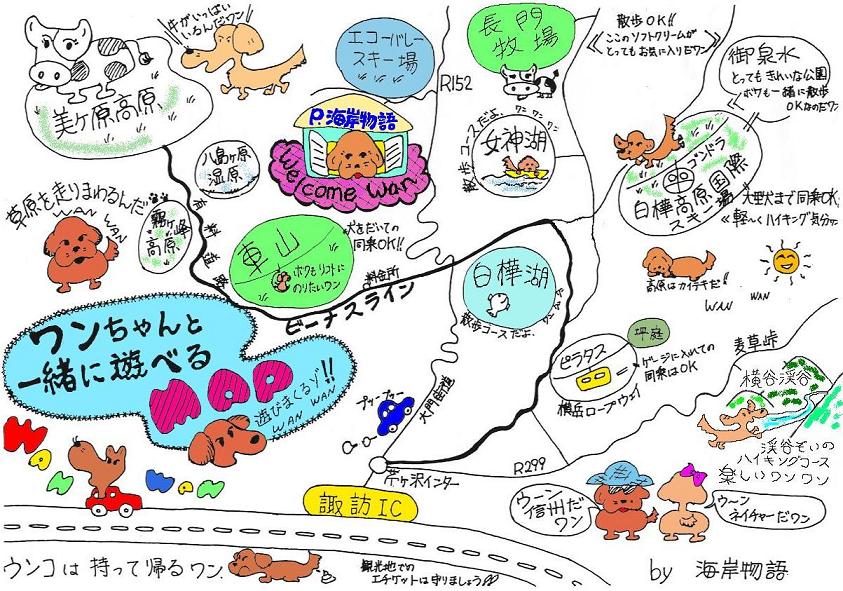 牛がいっぱい
いるんだワン
美ヶ原高原
エコーバレー
スキー場
R152
長門
牧場
散歩OK!!
ここのソフトクリームが
とってもお気に入りだワン
御泉水
とってもきれいな公園
ボクも一緒に散歩
OKなのだワン
P.海岸物語
Welcome wan
八島ヶ原
湿原
散歩コースだよ。ワンワンワン
女神湖
ゴンドラ
白樺高原国際
スキー場
大型犬まで同乗OK
軽〜くハイキング気分ワン
草原を走りまわるんだ
WAN WAN
霧ヶ峰
高原
有料道路
車山
ボクもリフトに
のりたいワン
犬をだいての
同乗OK!!
料金所
ビーナスライン
白樺湖
散歩コースだよ。ワンワンワン
高原はカイテキだ!!
WAN WAN
ワンちゃんと
一緒に遊べる
MAP
遊びまくるゾ!!
WAN WAN
ブッブー
大門街道
ピラタス
横岳ロープウェイ
坪庭
ゲージに入れての
同乗はOK
麦草峠
横谷渓谷
渓谷ぞいの
ハイキングコース
楽しいワンワン
Wan Wan
茅ヶ沢インター
R299
諏訪IC
ウーン
信州だ
ワン
ウ〜ン
ネイチャーだワン
ウンコは持って帰るワン
観光地での
エチケットは守りましょう
by 海岸物語